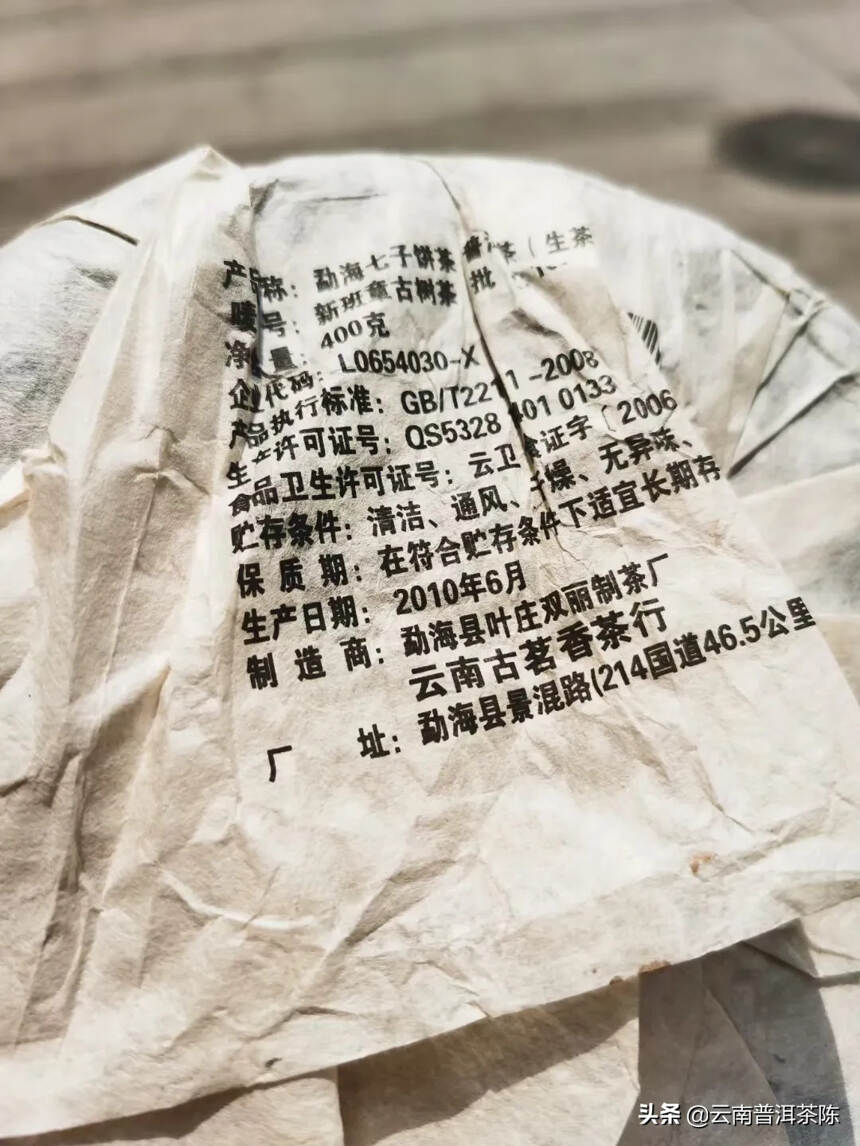 产品名称：勐海七子饼茶 普洱茶（生茶
唛号：新班章古树茶 批
净含量：400克
企业代码：L0654030-X
产品执行标准：GB/T22111-2008
生产许可证号：QS5328 1401 0133
食品卫生许可证号：云卫食证字〔2006
贮存条件：清洁、通风、干燥、无异味、
保质期：在符合贮存条件下适宜长期存
生产日期：2010年6月
制造商：勐海县叶庄双丽制茶厂
云南古茗香茶行
厂址：勐海县景混路(214国道46.5公里
头条 @云南普洱茶陈